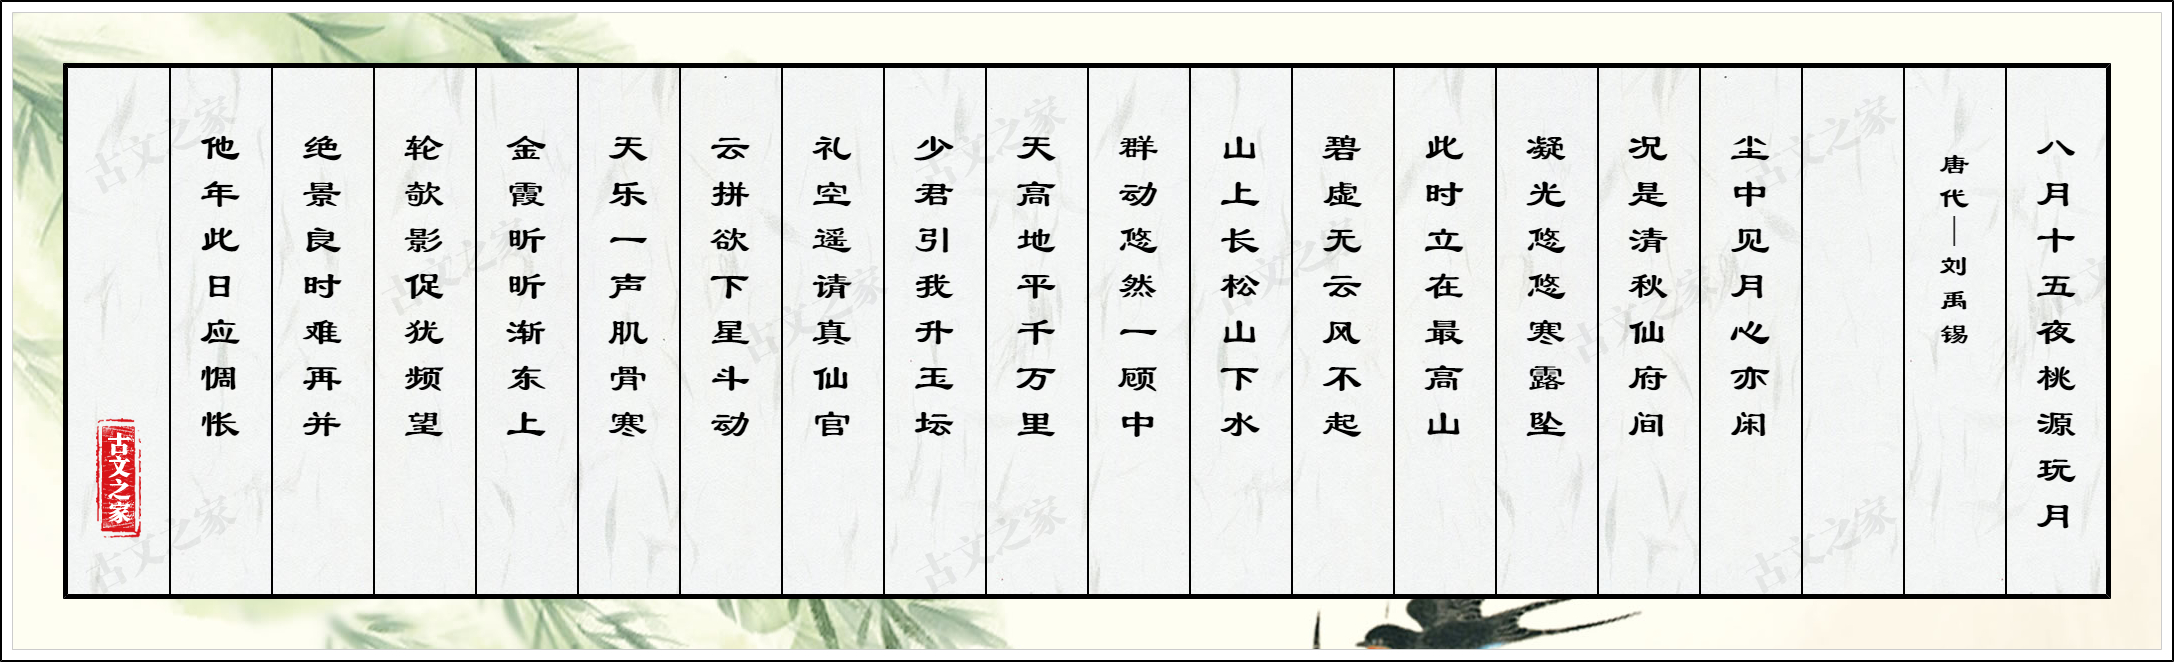 八月十五夜桃源玩月
唐代—刘禹锡
尘中见月心亦闲
况是清秋仙府间
凝光悠悠寒露坠
此时立在最高山
碧虚无云风不起
山上长松山下水
群动悠然一顾中
天高地平千万里
少君引我升玉坛
礼空遥请真仙官
云拼欲下星斗动
天乐一声肌骨寒
金霞昕昕渐东上
轮欹影促犹频望
绝景良时难再并
他年此日应惆怅
古文之家